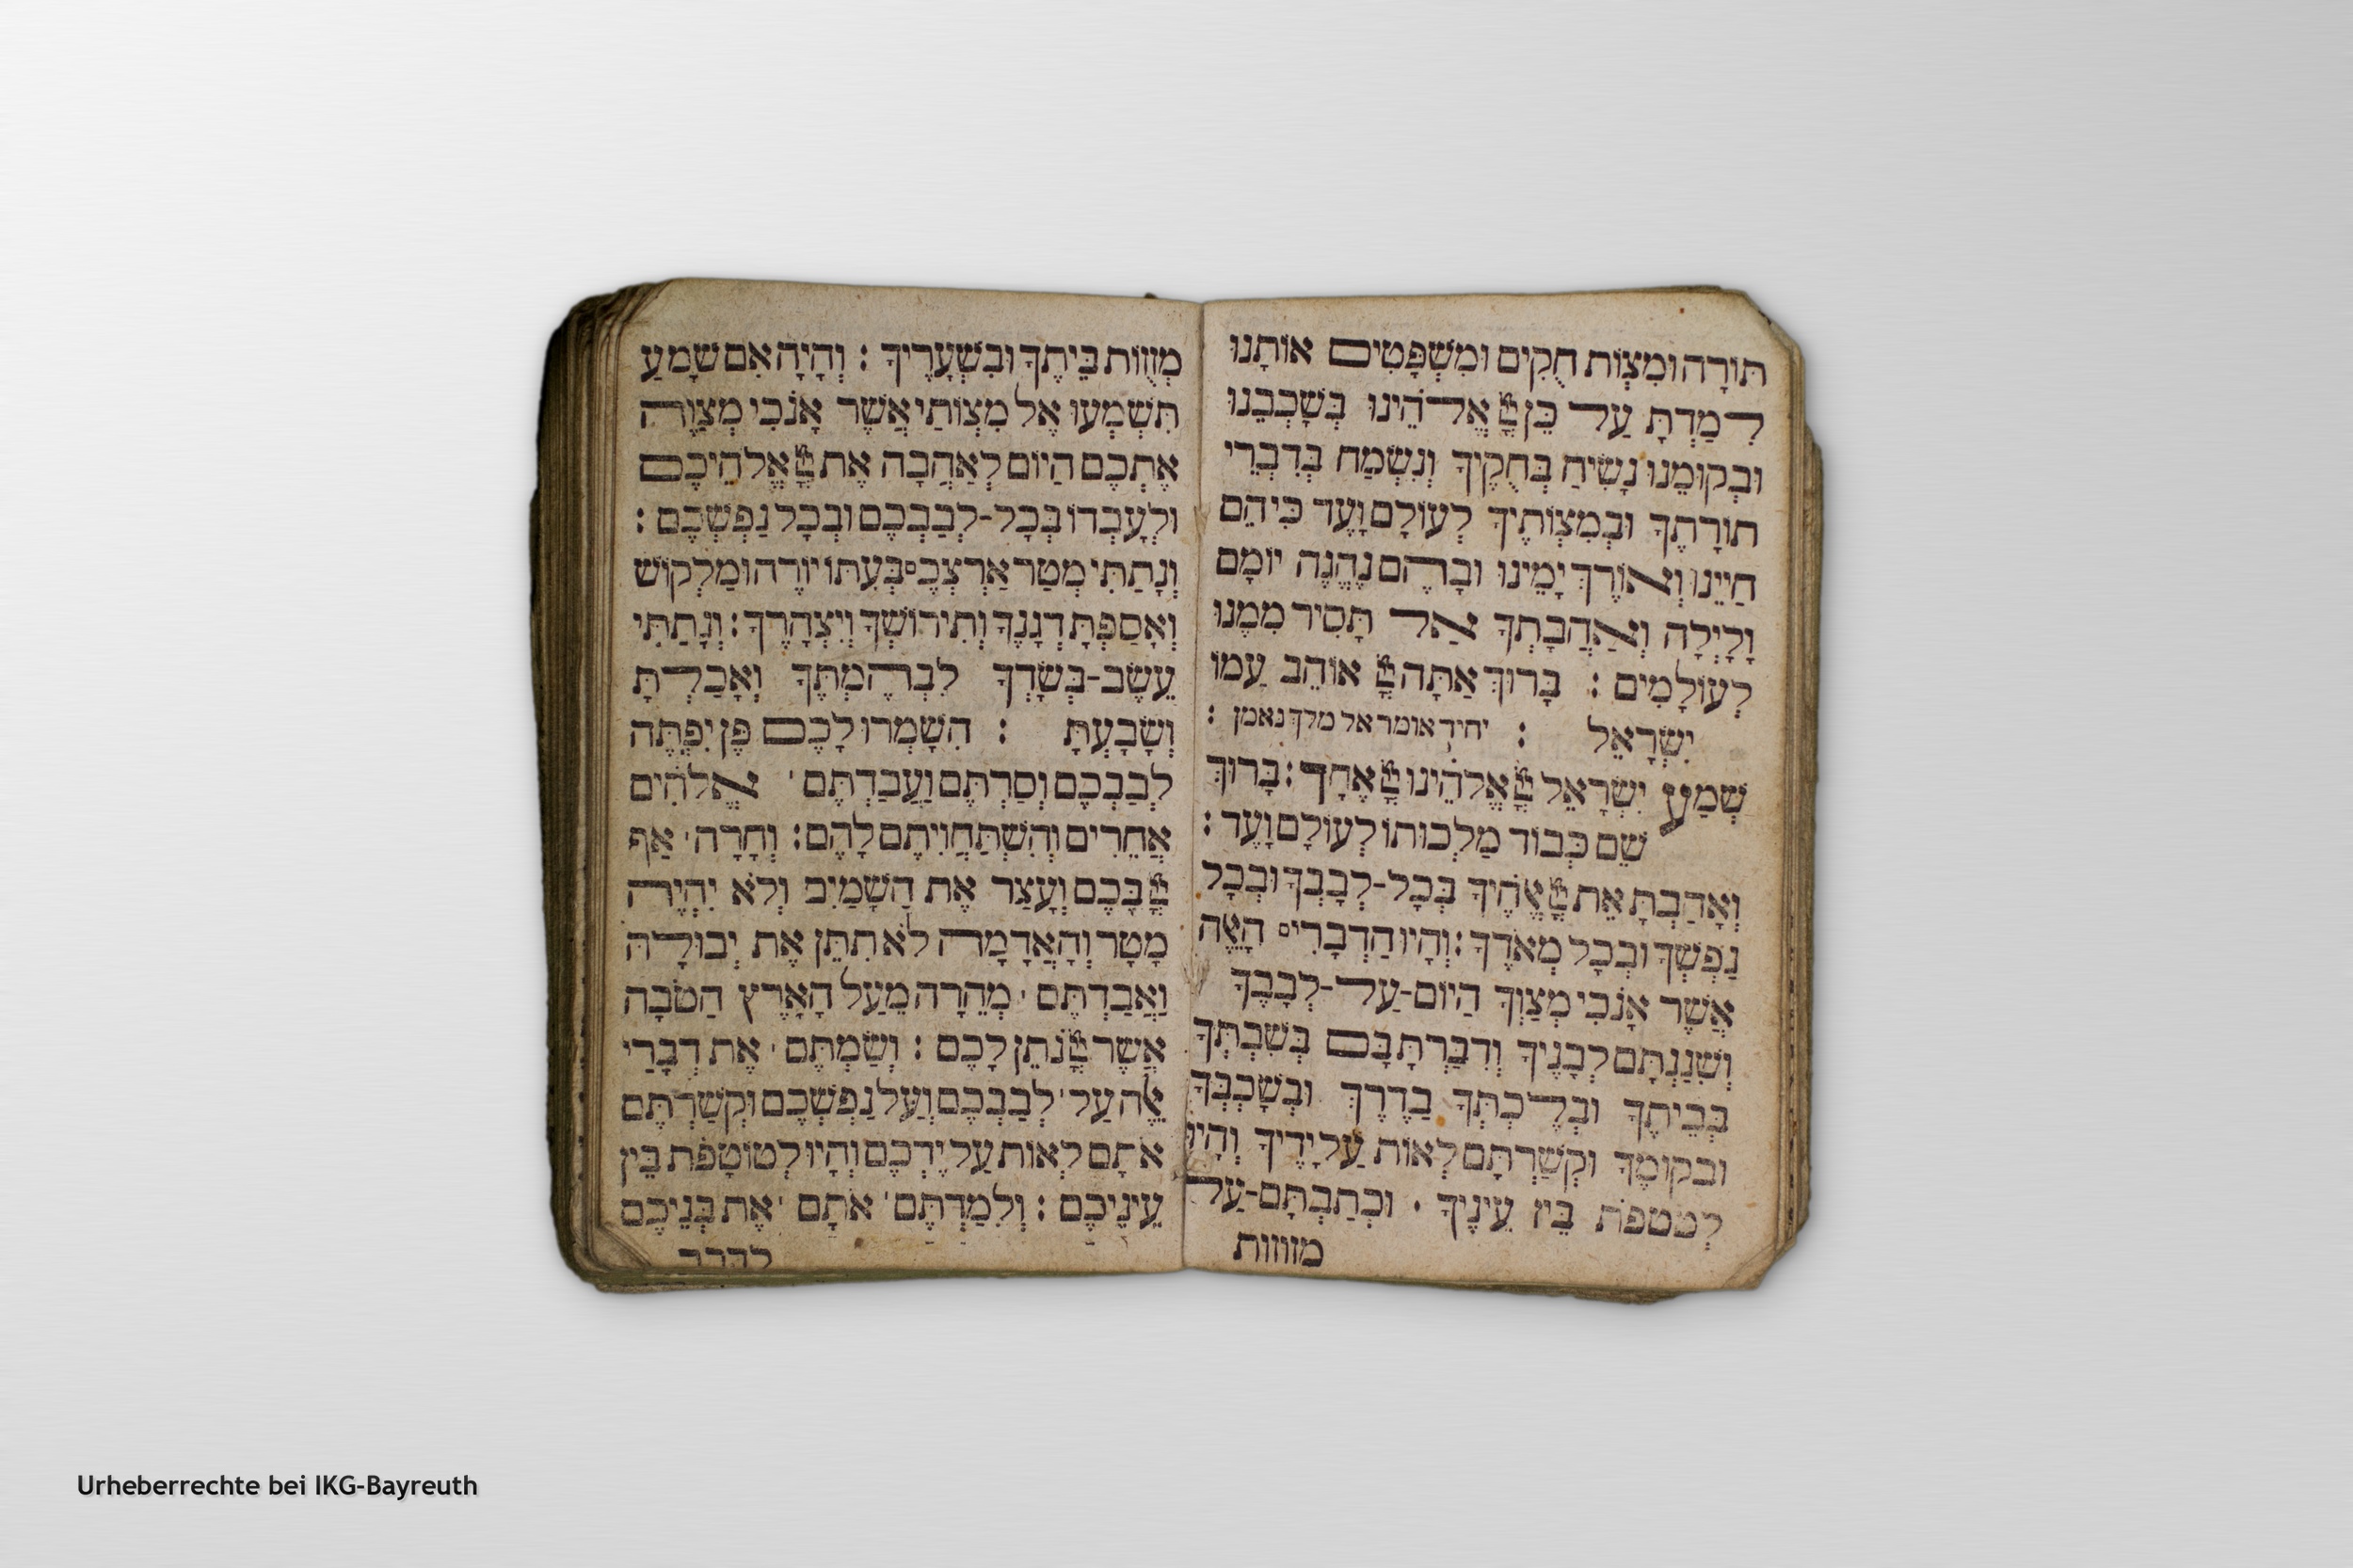 תּוֹרָה וּמִצְוֹת חֻקִים וּמִשְׁפָּטִים אוֹתָנוּ
לִמַדְתָּ עַל כֵּן יְיָ אֱלֹהֵינוּ בְּשָׁכְבֵנוּ
וּבְקוּמֵנוּ נָשִׂיחַ בְּחֻקֶיךָ וְנִשְׂמַח בְּדִבְרֵי
תוֹרָתֶךָ וּבְמִצְוֹתֶיךָ לְעוֹלָם וָעֶד כִּי הֵם
חַיֵינוּ וְאוֹרֶךְ יָמֵינוּ וּבָהֶם נֶהֱגֶה יוֹמָם
וָלָיְלָה וְאַהֲבָתְךָ אַל תָּסִיר מִמֶנוּ
לְעוֹלָמִים : בָּרוּךְ אַתָּה יְיָ אוֹהֵב עַמוֹ
יִשְׂרָאֵל : יחיד אומר אל מלך נאמן :
שְׁמַע יִשְׂרָאֵל יְיָ אֱלֹהֵינוּ יְיָ אֶחָד : בָּרוּךְ
שֵׁם כְּבוֹד מַלְכוּתוֹ לְעוֹלָם וָעֶד :
וְאָהַבְתָּ אֵת יְיָ אֱלֹהֶיךָ בְּכָל-לְבָבְךָ וּבְכָל
נַפְשְׁךָ וּבְכָל מְאֹדֶךָ : וְהָיוּ הַדְבָרִים הָאֵלֶּה
אֲשֶׁר אָנֹכִי מְצַוְךָ הַיוֹם-עַל-לְבָבֶךָ
וְשִׁנַנְתָּם לְבָנֶיךָ וְדִבַּרְתָּ בָּם בְּשִׁבְתְּךָ
בְּבֵיתֶךָ וּבְלֶכְתְּךָ בַדֶרֶךְ וּבְשָׁכְבְּךָ
ובקוּמֶךָ וּקְשַׁרְתָּם לְאוֹת עַל יָדֶיךָ וְהָיוּ
לְטֹטפֹת בֵּין עֵינֶיךָ . וּכְתַבְתָּם-עַל
מזוזות
מְזֻזוֹת בֵּיתֶךָ וּבִשְׁעָרֶיךָ : וְהָיָה אִם שָׁמֹעַ
תִּשְׁמְעוּ אֶל מִצְוֹתַי אֲשֶׁר אָנֹכִי מְצַוֶה
אֶתְכֶם הַיוֹם לְאַהֲבָה אֶת יְיָ אֱלֹהֵיכֶם
וּלְעָבְדוֹ בְּכָל-לְבַבְכֶם וּבְכָל נַפְשְׁכֶם :
וְנָתַתִּי מְטַר אַרְצְכֶם בְּעִתּוֹ יוֹרֶה וּמַלְקוֹשׁ
וְאָסַפְתָּ דְגָנֶךָ וְתִירוֹשְׁךָ וְיִצְהָרֶךָ : וְנָתַתִּי
עֵשֶׂב-בְּשָׂדְךָ לִבְהֶמְתֶּךָ וְאָכַלְתָּ
וְשָׂבָעְתָּ : הִשָׁמְרוּ לָכֶם פֶּן יִפְתֶּה
לְבַבְכֶם וְסַרְתֶּם וַעֲבַדְתֶּם אֱלֹהִים
אֲחֵרִים וְהִשְׁתַּחֲוִיתֶם לָהֶם : וְחָרָה אַף
יְיָ בָּכֶם וְעָצַר אֶת הַשָׁמַיִם וְלֹא יִהְיֶה
מָטָר וְהָאֲדָמָה לֹא תִתֵּן אֶת יְבוּלָהּ
וַאֲבַדְתֶּם מְהֵרָה מֵעַל הָאָרֶץ הַטֹבָה
אֲשֶׁר יְיָ נֹתֵן לָכֶם : וְשַׂמְתֶּם אֶת דְבָרַי
אֵלֶּה עַל לְבַבְכֶם וְעַל נַפְשְׁכֶם וּקְשַׁרְתֶּם
אֹתָם לְאוֹת עַל יֶדְכֶם וְהָיוּ לְטוֹטָפֹת בֵּין
עֵינֵיכֶם : וְלִמַדְתֶּם אֹתָם אֶת בְּנֵיכֶם
לדבר
Urheberrechte bei IKG-Bayreuth